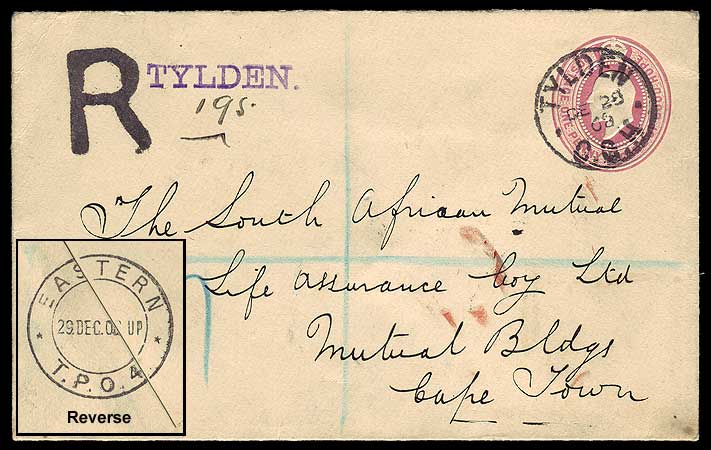 R TYLDEN.
195.
TYLDEN
29
DE 08
C.G.H.
The South African Mutual
Life Assurance Coy Ltd
Mutual Bldgs
Cape Town
EASTERN
29.DEC.08 UP
T.P.O.4
Reverse